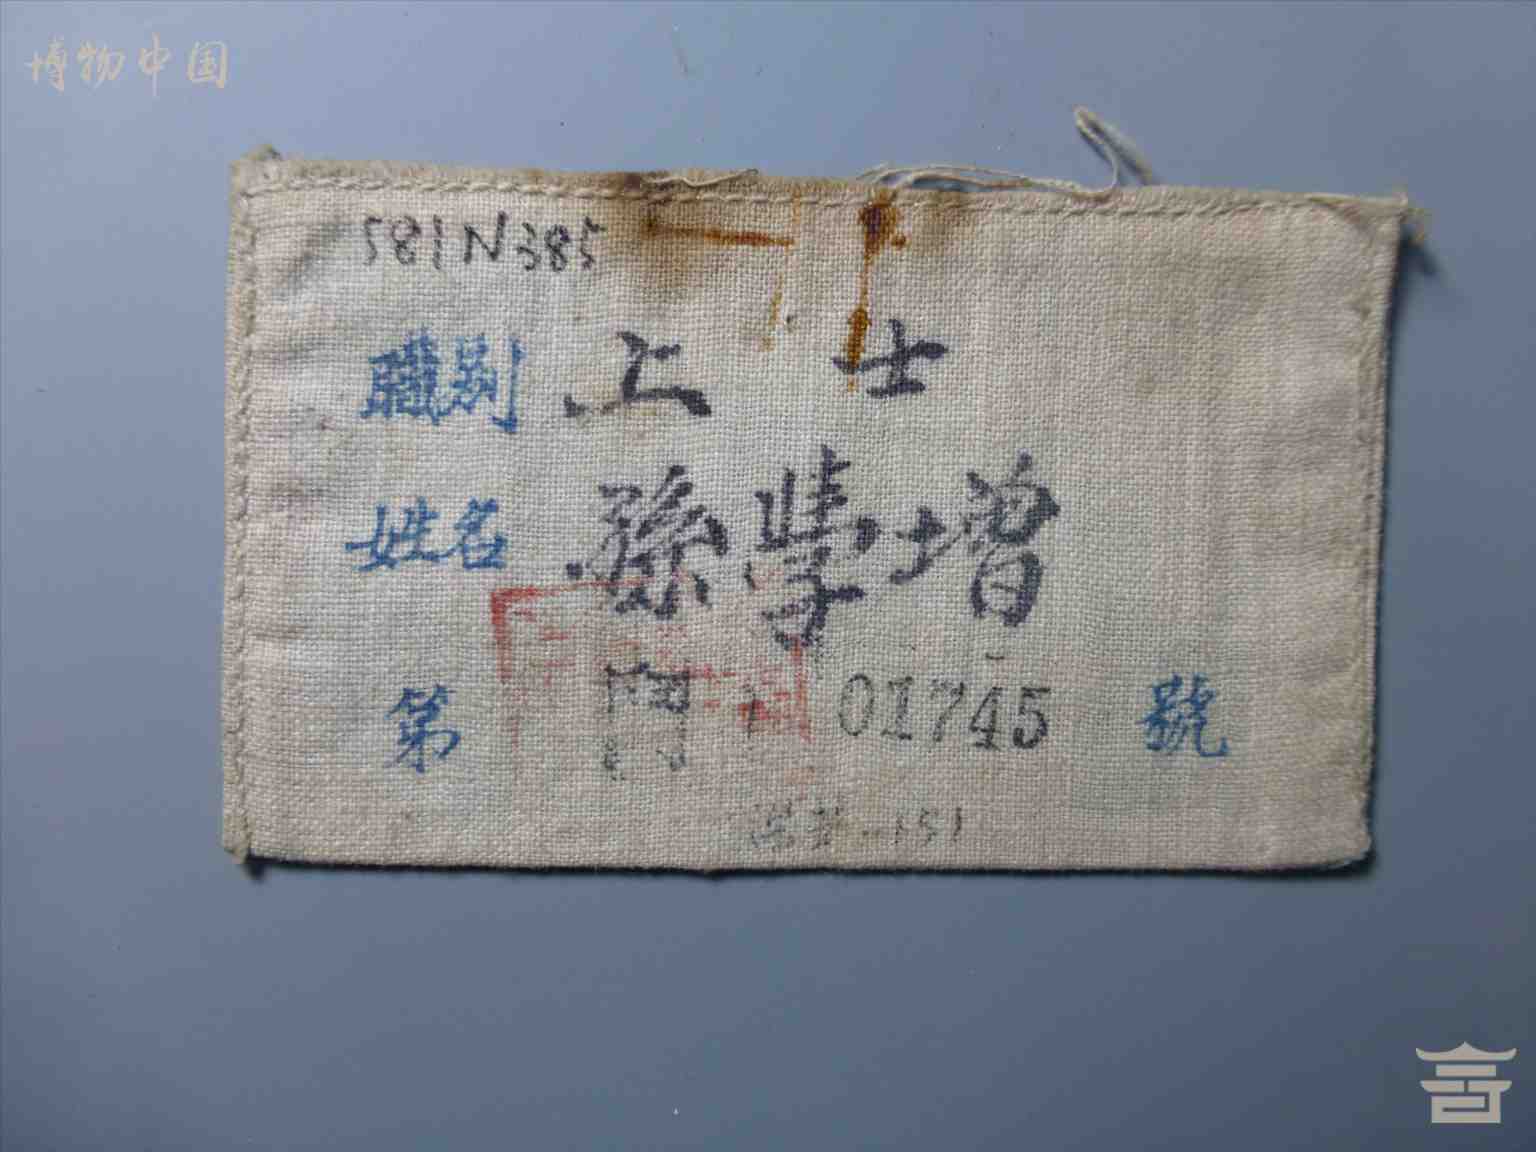 博物中国
581N385
職别 上士
姓名 孫學增
第 01745 號